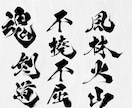 風林火山
不撓不屈
魂
剣道